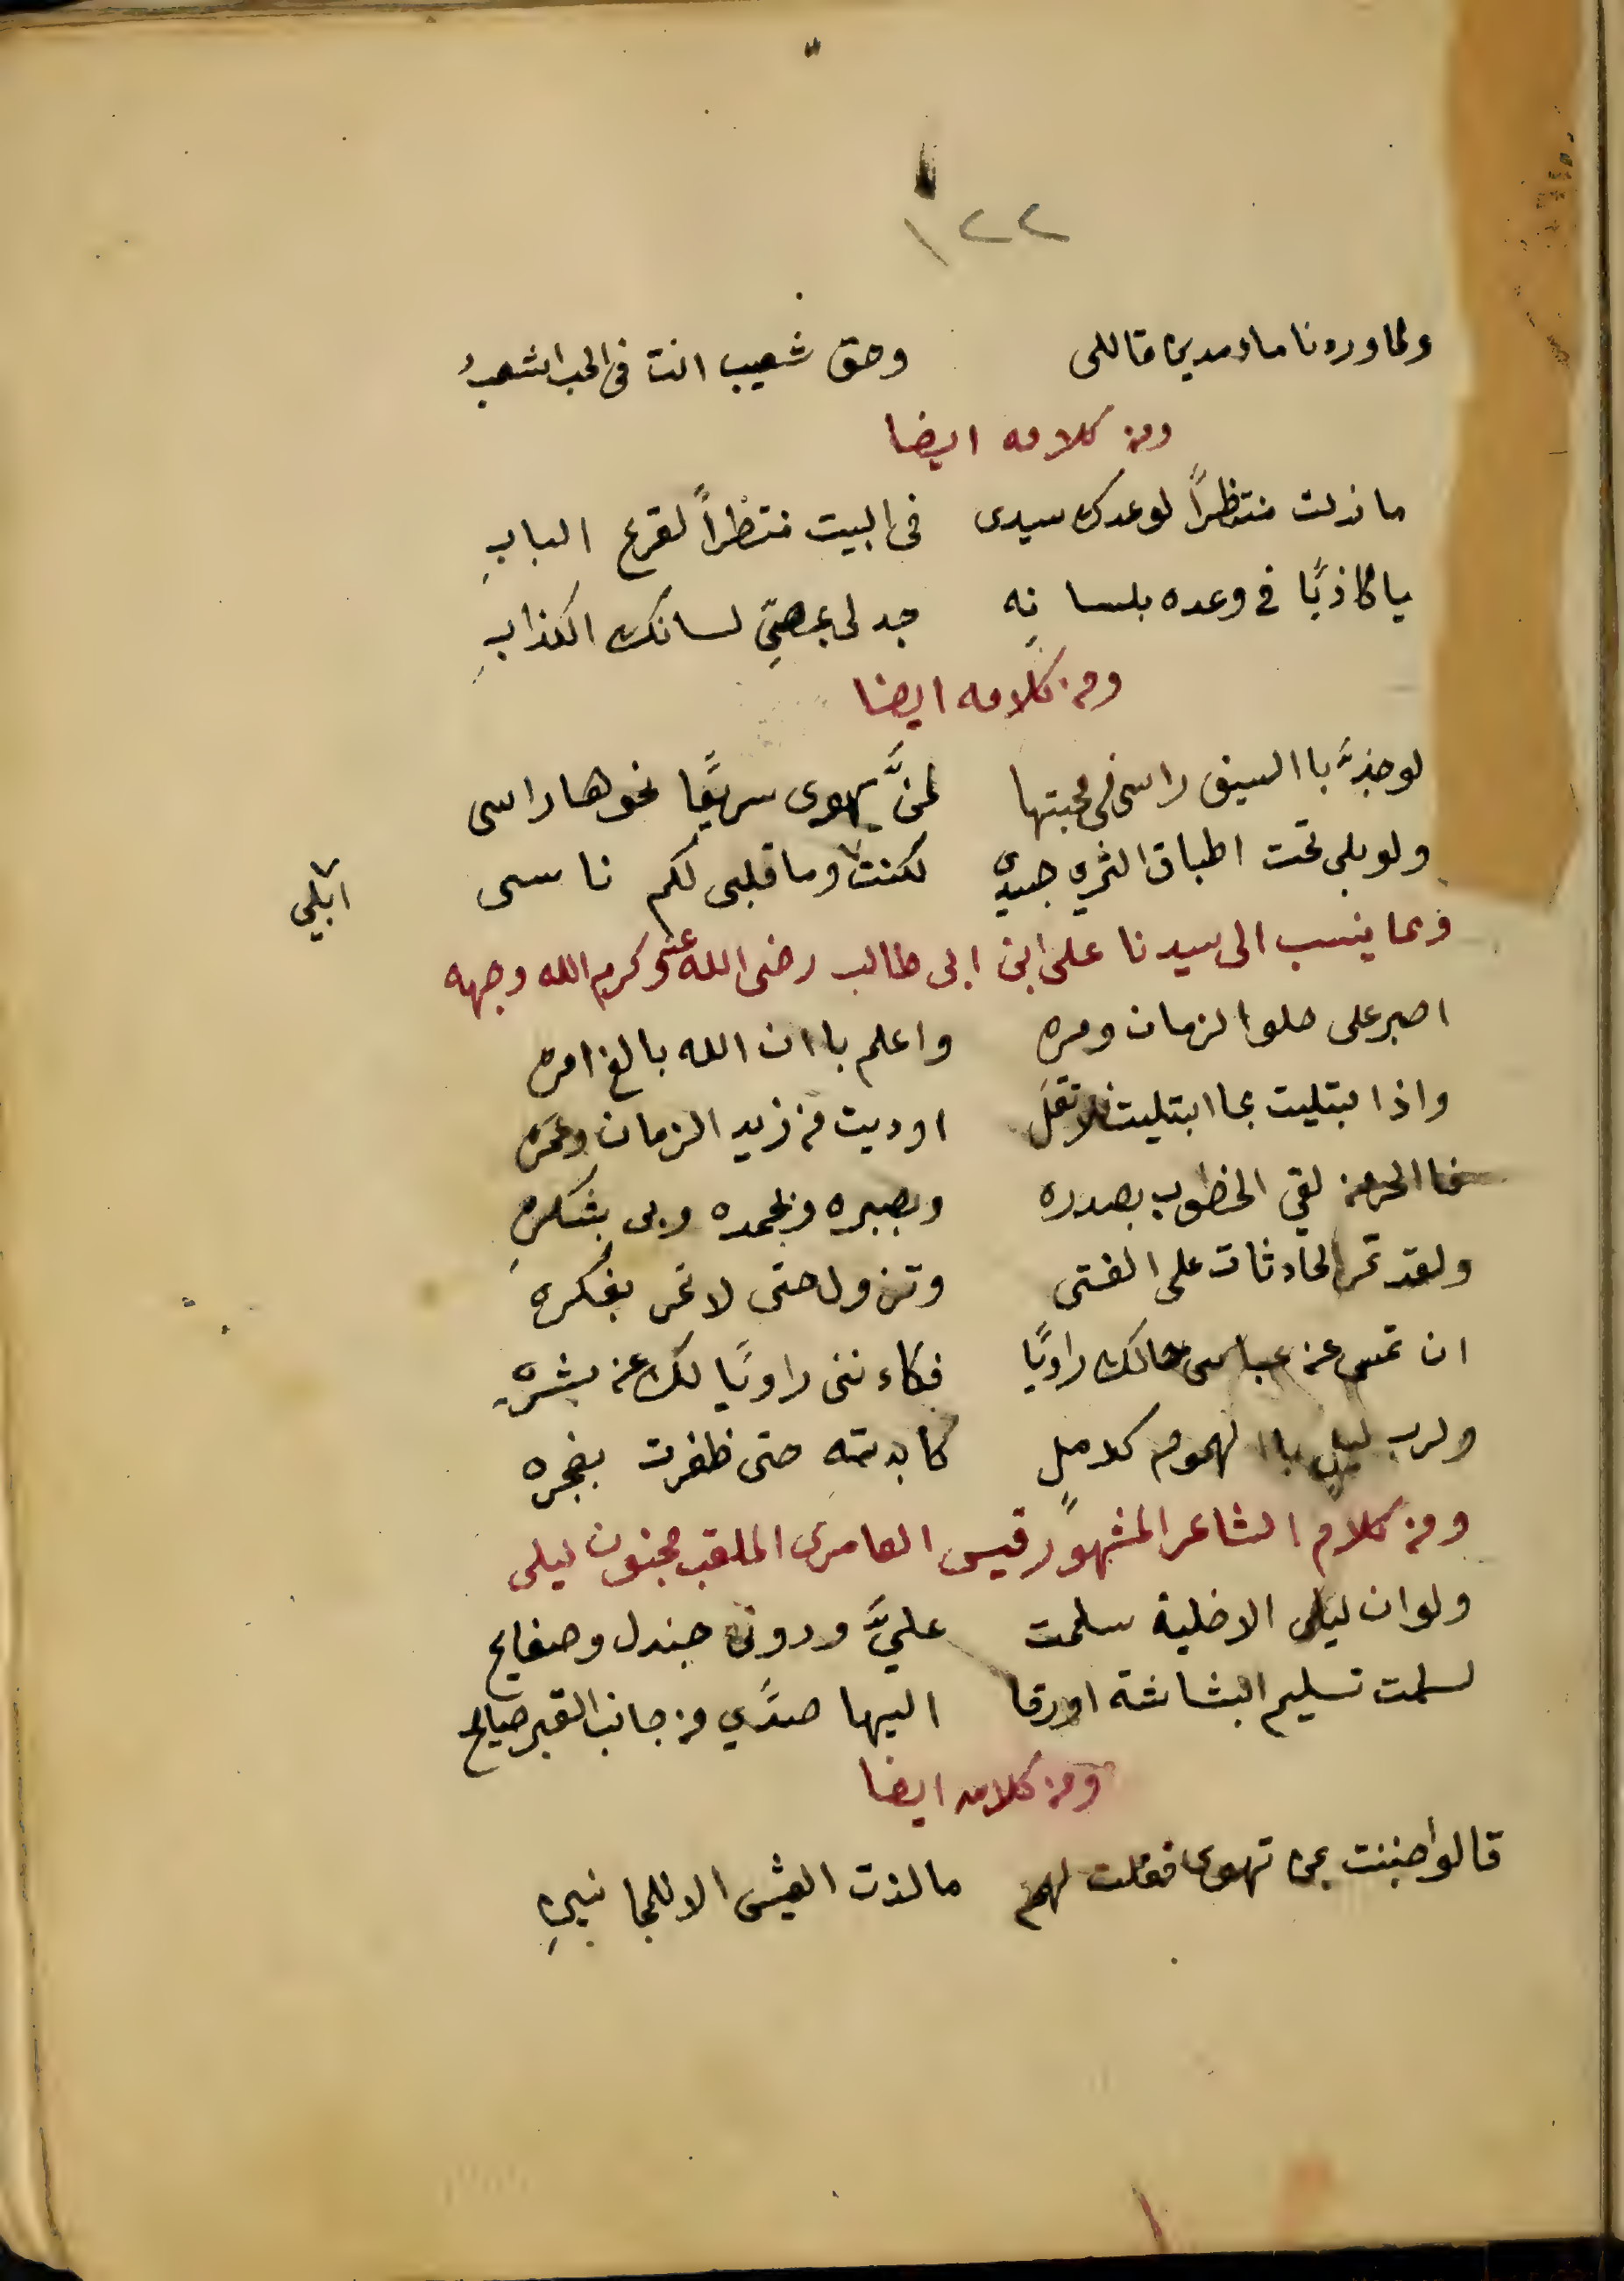 ١٢٢
ولما وردنا ماء مدين قال لى وحق شعيب انت فى الحب اشعبُ
ومن كلامه ايضا
ما زلت منتظراً لوعدك سيدى فى البيت منتظراً لقرع البابِ
يا كاذبًا فى وعده بلسانِه جد لى بمصّ لسانك الكذابِ
ومن كلامه ايضا
لو جذَّ با السيف راسى فى محبتها لمرَّ يهوى سريعًا نحوها راسى
ولو بلى تحت اطباق الثرى جسدى لكنت وما قلبى لكم ناسى
ابلى
ومما ينسب الى سيدنا على ابن ابى طالب رضى الله عنه وكرم الله وجهه
اصبر على حلو الزمان ومره واعلم باان الله بالغ امره
واذا بتليت بما ابتليت فلا تقل اوديت من زيد الزمان وعمره
فما الحر من لقي الخطوب بصدره وبصبره وبحمده وبى بشكرهِ
ولقد تمر الحادثات على الفتى وتزول حتى لا تمر بفكره
ان تمس عن عباس حالك راويًا فكاءننى راويًا لك عن بشره
ولرب ليلٍ باا لهموم كدملٍ كابدته حتى ظفرت بفجره
ومن كلام الشاعر المشهور قيس العامرى الملقب مجنون ليلى
ولو ان ليلى الاخلية سلمت عليَّ ودونى جندل وصفايح
لسلمت تسليم البشاشة او زقا اليها صدًى من جانب القبر صايح
ومن كلامه ايضا
قالوا جننت بمن تهوى فقلت لهم ما لذت العيش الا للمجانينِ